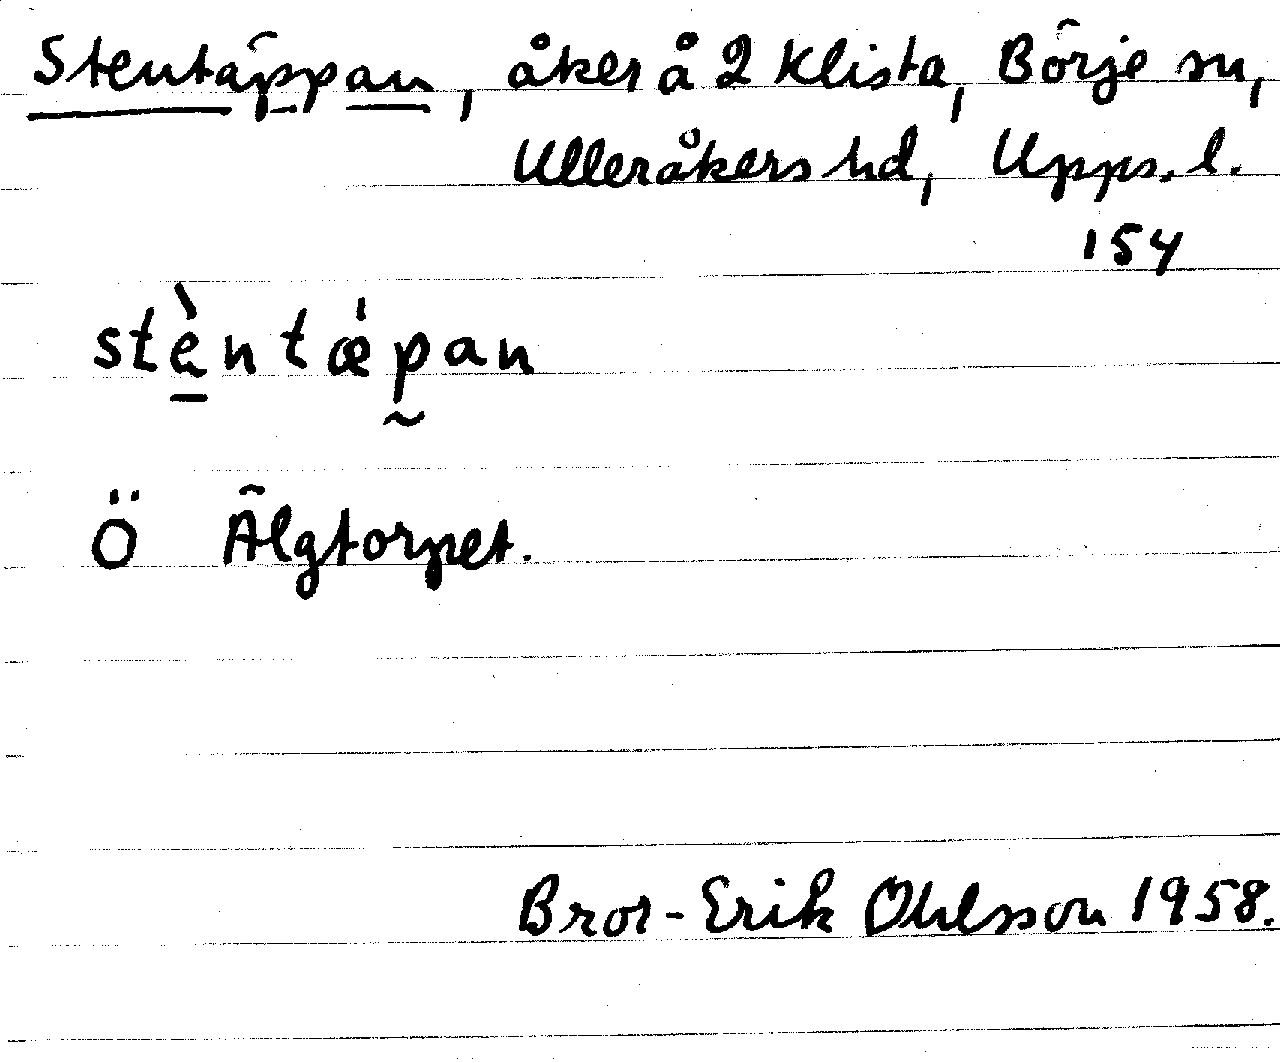 Stentäppan, åker å 2 Klista, Börje sn,
Ulleråkers hd, Upps. l.
154
stèntǽpan
Ö Älgtorpet.
Bror-Erik Ohlsson 1958.